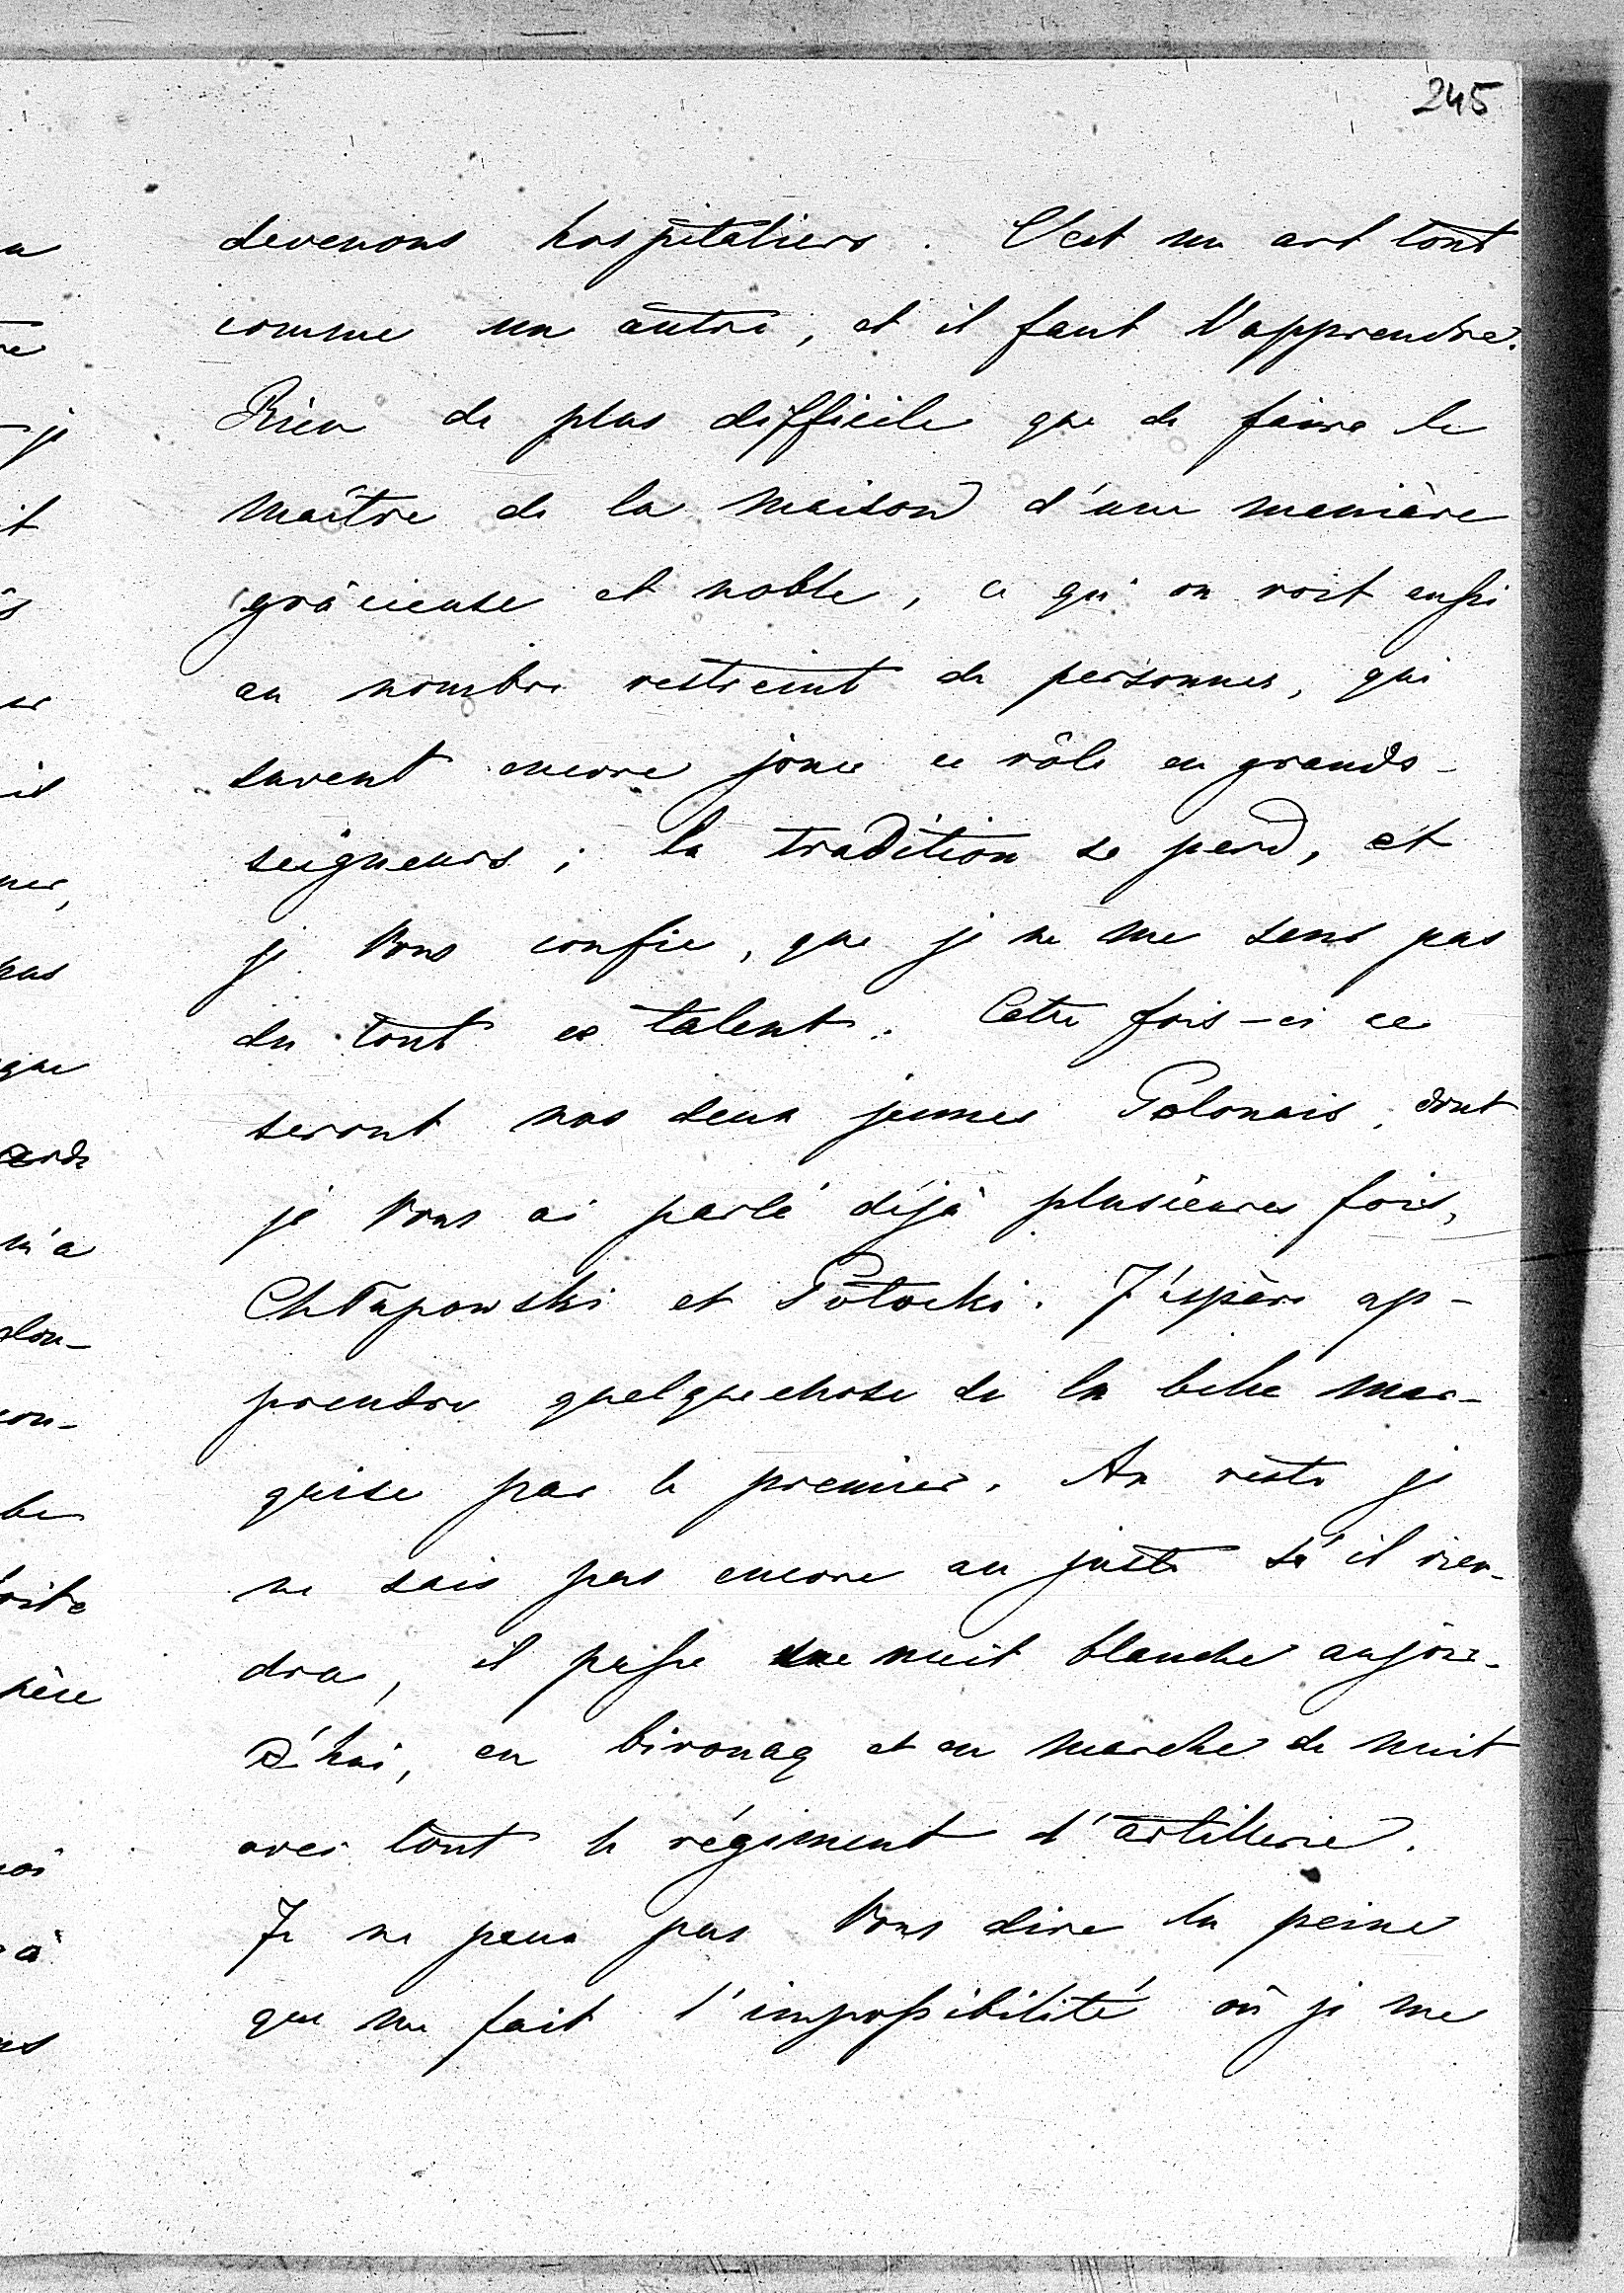 245
devenons hospitaliers. C'est un art tout
comme un autre, et il faut l'apprendre.
Rien de plus difficile que de faire le
maître de la maison d'une manière
gracieuse et noble, ce qu'on voit aussi
au nombre restreint de personnes, qui
savent encore jouer ce rôle en grands-
seigneurs; la tradition se perd, et
je Vous confie, que je ne me sens pas
du tout ce talent. Cette fois-ci ce
seront nos deux jeunes Polonais, dont
je Vous ai parlé déjà plusieures fois,
Chłapowski et Potocki. J'espère ap-
prendre quelquechose de la belle mar-
quise par le premier. Au reste je
ne sais pas encore au juste s'il vien-
dra, il passe une nuit blanche aujour-
d'hui, en bivouaq et en marche de nuit
avec tout le régiment d'artillerie.
Je ne peux pas Vous dire la peine
que me fait l'impossibilité où je me